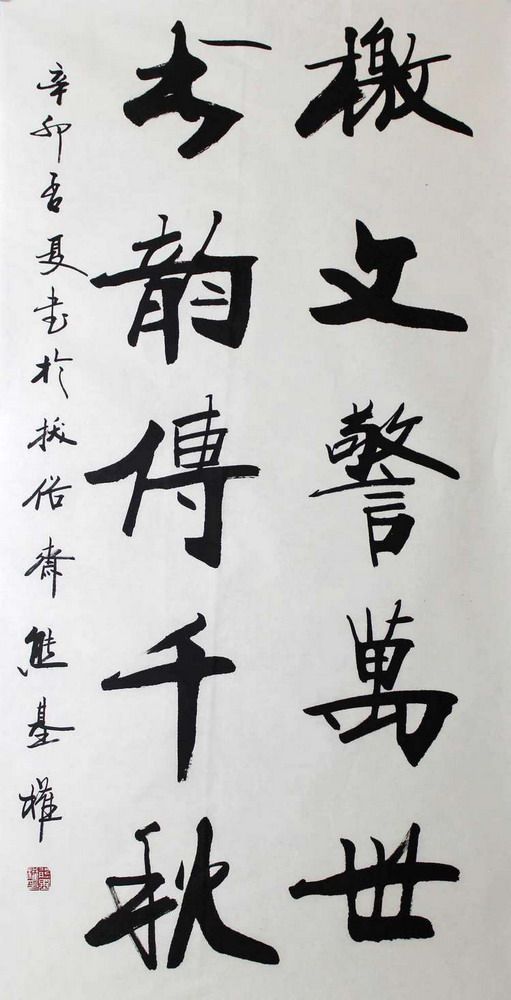 檄文警萬世
韻傳千秋
辛卯吾夏書於拔俗齋熊基權